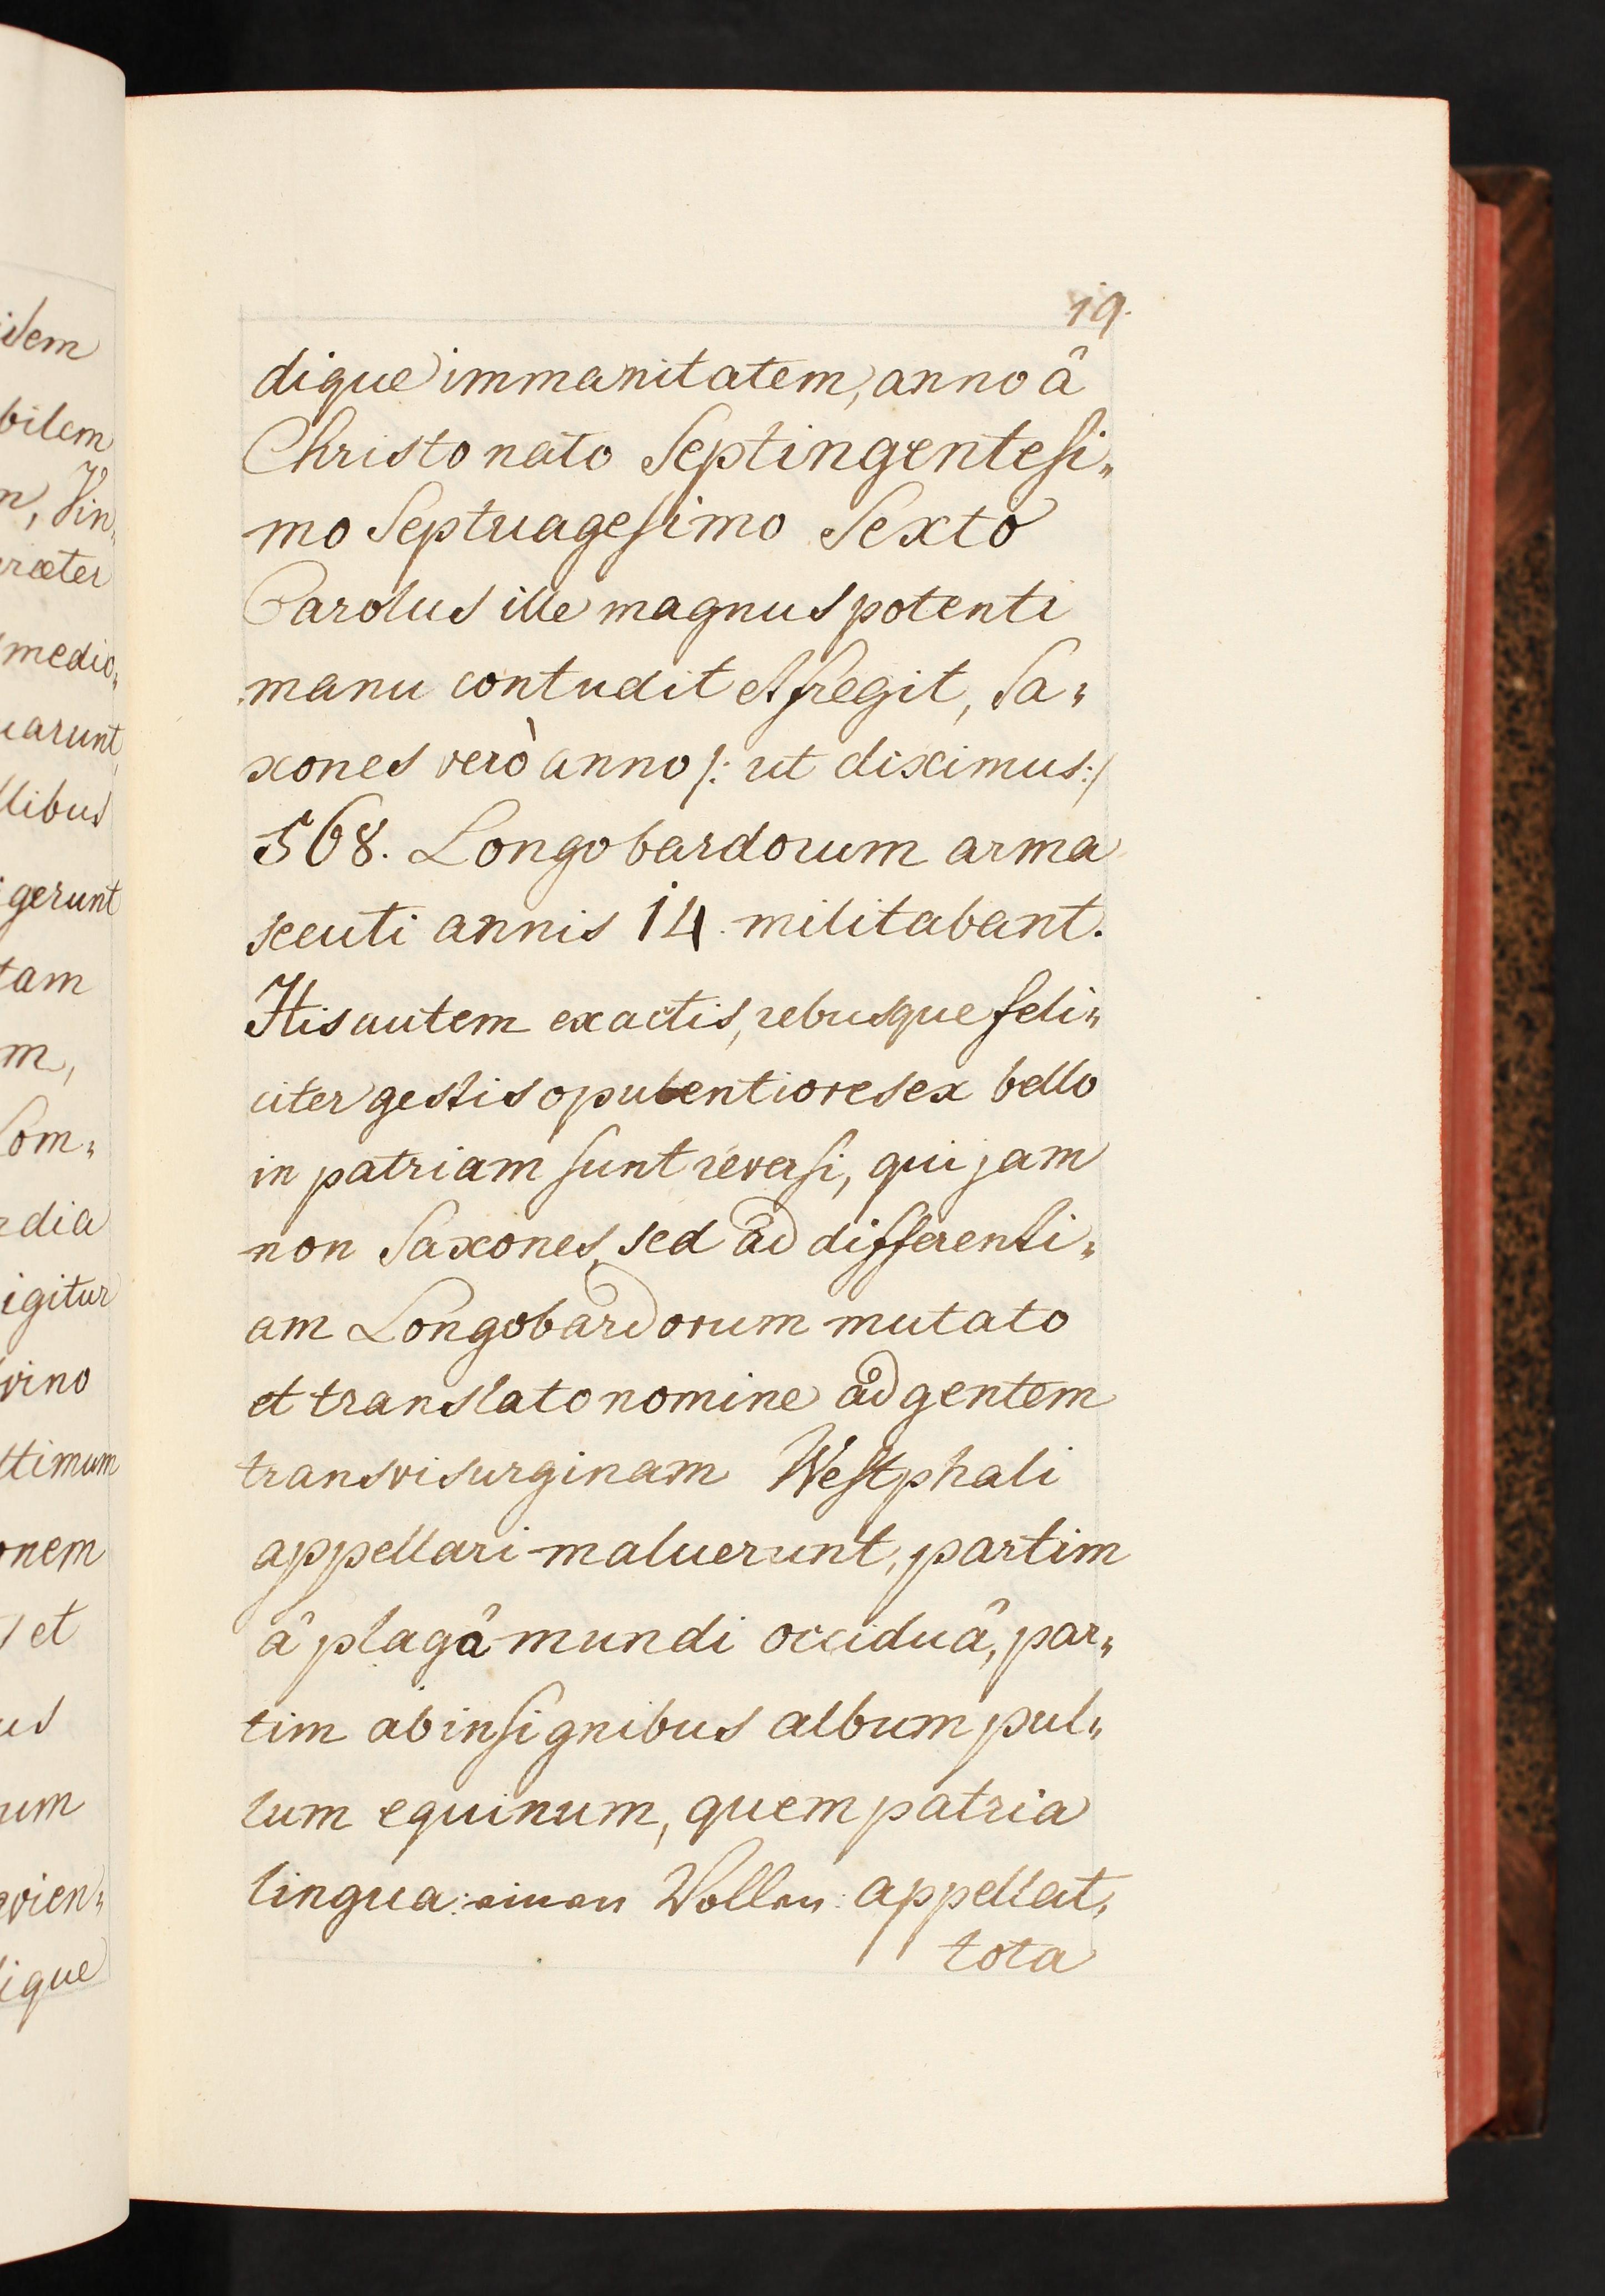 idem
bilem
n, Vin„
ræter
medio„
uarunt
llibus
gerunt
tam
m,
Lom„
rdia
igitur
vino
ttimum
onem
et
us
um
vien„
ique
19.
dique immanitatem, anno â
Christo nato Septingentesi„
mo Septuagesimo Sexto
Carolus ille magnus potenti
manu contudit et fregit, Sa„
xones verò anno /: ut diximus :/
568. Longobardorum arma
secuti annis 14. militabant.
His autem exactis, rebusque feli„
citer gestis opulentiores ex bello
in patriam sunt reversi, qui jam
non Saxones, sed ad differenti„
am Longobardorum mutato
et translato nomine ad gentem
transvisurginam Westphali
appellari maluerunt, partim
â plagâ mundi occiduâ, par„
tim ab insignibus album pul„
lum equinum, quem patria
lingua: einen Vollen: appellat,
tota